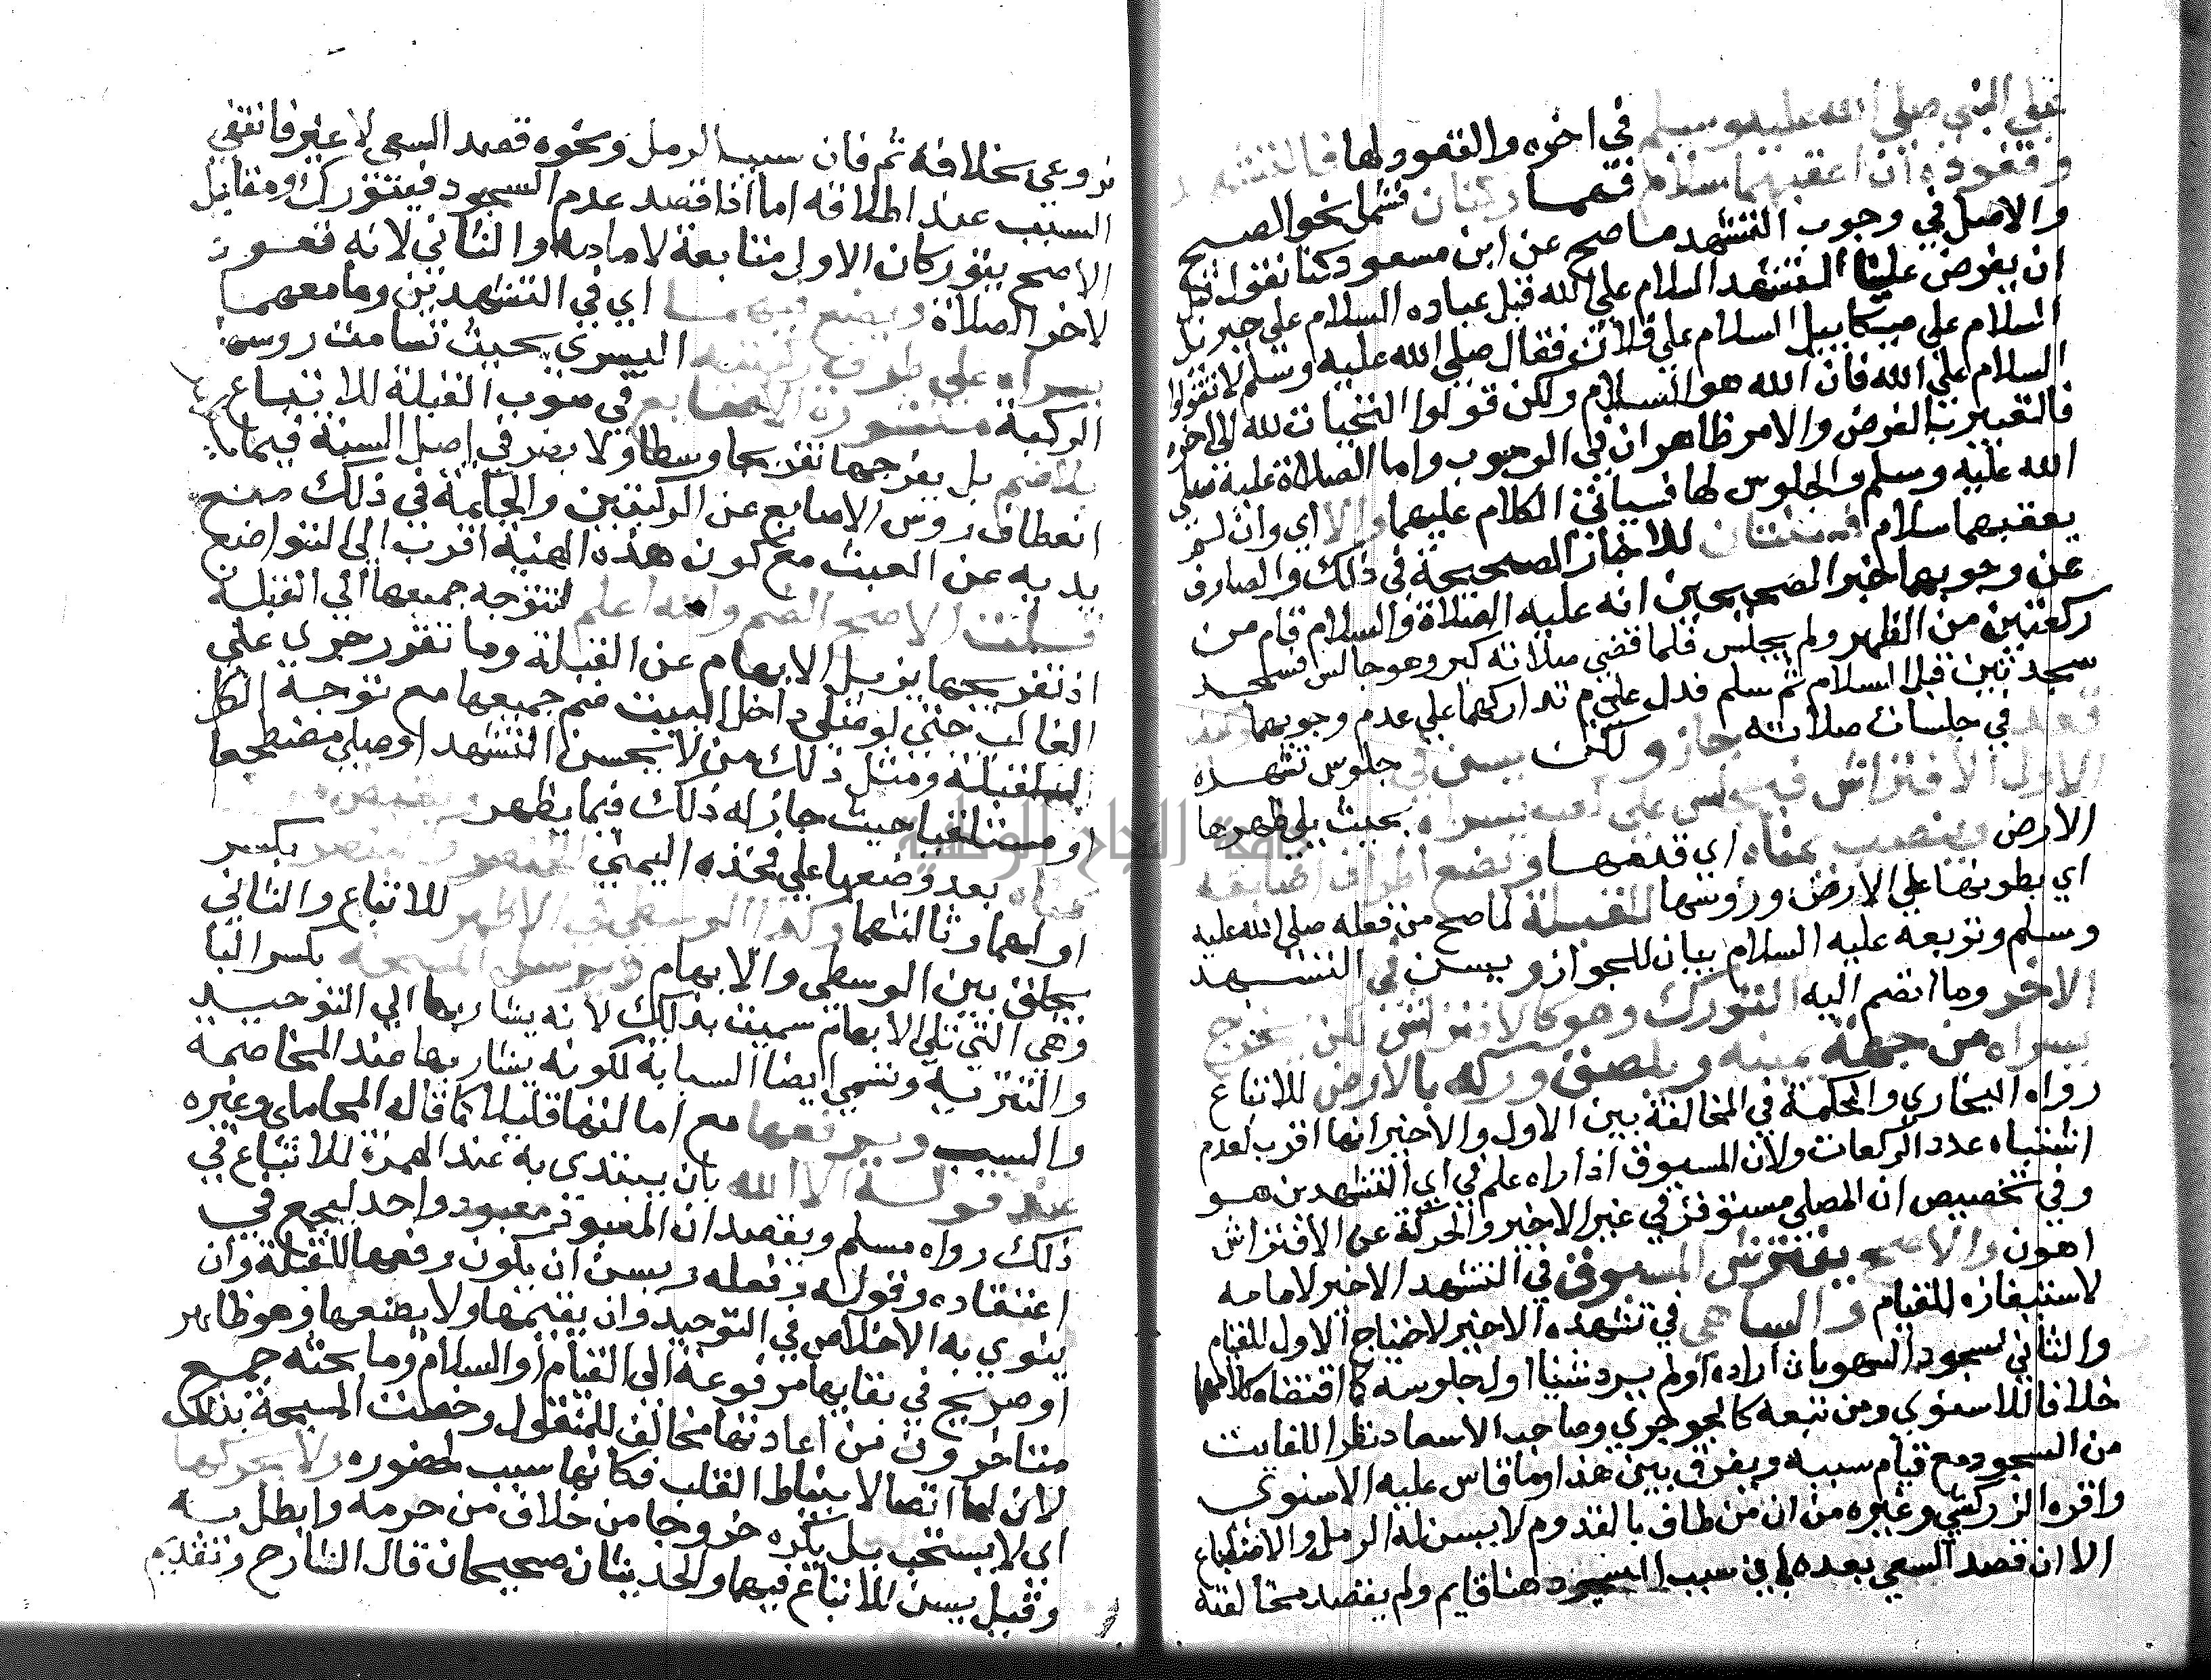 علي النبي صلي الله عليه وسلم في اخره والقعود لها فالتشهد
وقعوده ان اعقبهما سلام فهما ركنان فشمل نحو الصبح
والاصل في وجوب التشهد ما صح عن ابن مسعود كنا نقول قبل
ان يفرض علينا التشهد السلام علي الله قبل عباده السلام علي جبريل
السلام علي ميكاييل السلام علي فلان فقال صلي الله عليه وسلم لا تقولوا
السلام علي الله فان الله هو السلام ولكن قولوا التحيات لله الي اخره
فالتعبير بالفرض والامر ظاهران في الوجوب واما الصلاة عليه صلي
الله عليه وسلم والجلوس لها فسياتي الكلام عليهما والا اي وان لم
يعقبهما سلام فسنتان للاخبار الصحيحة في ذلك والصارف
عن وجوبهما خبر الصحيحين انه عليه الصلاة والسلام قام من
ركعتين من الظهر ولم يجلس فلما قضي صلاته كبر وهو جالس فسجد
سجدتين قبل السلام ثم سلم فدل علي م تداركهما علي عدم وجوبهما
قعد في جلسات صلاته جاز و لكن يسن في جلوس تشهده
الاول الافتراش فيجلس علي كعب يسراه بحيث يلي ظهرها
الارض وينصب يمناه اي قدمها ويضع اطراف اصابعه
اي بطونها علي الارض ورؤسها للقبلة لما صح من فعله صلي الله عليه
وسلم وتربعه عليه السلام بيان للجواز ويسن في التشهد
الاخر وما انضم اليه التورك وهو كالافتراش لكن يخرج
يسراه من جهة يمينه ويلصق وركه بالارض للاتباع
رواه البخاري والحكمة في المخالفة بين الاول والاخير انها اقرب لعدم
اشتباه عدد الركعات ولان المسبوق اذا راه علم في اي التشهدين هو
وفي تخصيص ان المصلي مستوفز في غير الاخير والحركة عن الافتراش
اهون والاصح يفترش المسبوق في التشهد الاخير لامامه
لاستيفازه للقيام والساهي في تشهده الاخير لاحتياج الاول للقيام
والثاني لسجود السهو بان اراده او لم يرد شيئا اول جلوسه كما اقتضاه كلامهما
خلافا للاسنوي ومن تبعه كالجوجري وصاحب الاسعاد نظرا للغايت
من السجود مع قيام سببه ويفرق بين هذا وما قاس عليه الاسنوي
واقره الزركشي وغيره من ان من طاف بالقدوم لا يسن له الرمل والاضطباع
الا ان قصد السعي بعده في سبب السجود هنا قايم ولم يقصد مخالفته
نروعي بخلافه ثم فان سبب الرمل ونحوه قصد السعي لا غير فانتفي
السبب عند اطلاقه اما اذا قصد عدم السجود فيتورك ومقابل
الاصح يتوركان الاول متابعة لامامه والثاني لانه قعود
لاخر الصلاة ويضع فيهما اي في التشهدين وما معهما
يسراه علي طرف ركبته اليسري بحيث تسامت روسها
الركبة منشورة الاصابع في صوب القبلة للاتباع
بلا ضم بل يفرجها تفريجا وسطا ولا يضر في اصل السنة فيما
انعطاف روس الاصابع عن الركبتين والحكمة في ذلك منع
يديه عن العبث مع كون هذه الهيئة اقرب الي التواضع
قلت الاصح الضم والله اعلم لتتوجه جميعها الي القبلة
اذ تفريجها يزيل الابهام عن القبلة وما تقرر جري علي
الغالب حتي لو صلي داخل البيت ضم جميعها مع توجه الكل
للقبلة ومثل ذلك من لا يحسن التشهد او صلي مضطجعا
او مستلقيا حيث جاز له ذلك فيما يظهر ويقبض من
يمناه بعد وضعها علي فخذه اليمني الخنصر والبنصر بكسر
اولهما وثالثهما وكذا الوسطي في الاظهر للاتباع والثاني
يحلق بين الوسطي والابهام ويرسل المسبحة بكسر البا
وهي التي تلي الابهام سميت بذلك لانه يشار بها الي التوحيد
والتنزيه وتسمي ايضا السبابة لكونه يشار بها عند المخاصمة
والسبب ويرفعها مع امالتها قليلا كما قاله المحاملي وغيره
عند قوله الا الله بان يبتدي به عند الهمزة للاتباع في
ذلك رواه مسلم ويقصد ان المعبود معبود واحد ليجمع في
اعتقاده وقوله وفعله ويسن ان يكون رفعها للقبلة وان
ينوي به الاخلاص في التوحيد وان يقيمها ولا يضعها وهو ظاهر
او صريح في بقايها مرفوعة الي القيام او السلام وما بحثه جمع
متاخرون من اعادتها مخالف للمنقول وخصت المسبحة بذلك
لان لها اتصالا بنياط القلب فكانها سبب لحضوره ولا يحركها
اي لا يستحب بل يكره خروجا من خلاف من حرمه وابطل به
وقيل يسن للاتباع فيهما والحديثان صحيحان قال الشارح وتقديم
جامعة النجاح الوطنية